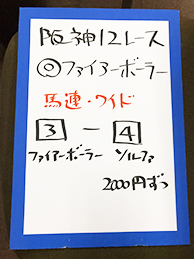 阪神12レース
◎ファイアーボーラー
馬連・ワイド
3 ー 4
ファイアーボーラー ソルファ
2000円ずつ